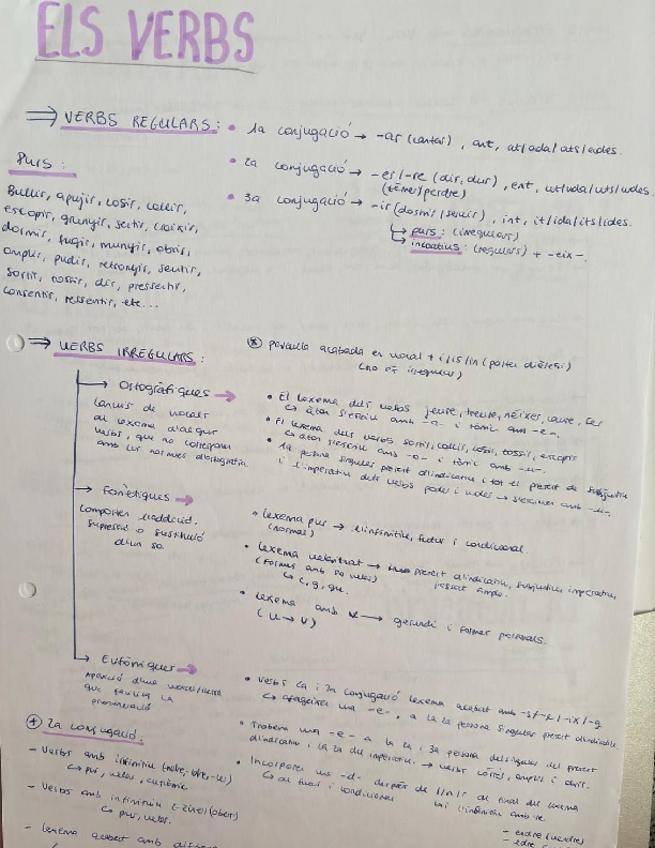 ELS VERBS
⇒ VERBS REGULARS:
• 1a conjugació → -ar (cantar), ant, at/ada/ats/ades.
• 2a conjugació → -er/-re (dir, dur), ent, ut/uda/uts/udes.
(témer/perdre)
• 3a conjugació → -ir (dormir/servir), int, it/ida/its/ides.
↳ purs: (irregulars)
↳ incoatius: (regulars) + -eix-.
Purs:
Bullir, apujir, cosir, collir,
escopir, grunyir, sertir, croixir,
dormir, fugir, munyir, obrir,
omplir, pudir, retronyir, sentir,
sortir, tossir, dir, pressentir,
consentir, ressentir, etc...
⇒ VERBS IRREGULARS:
* paraula acabada en vocal + i/is/in (porten dièresi)
(no és irregular)
→ Ortogràfiques →
canvis de vocals
al lexema d'algun
verbs, que no corresponen
amb les normes d'ortografia.
• El lexema dels verbs jeure, treure, néixer, caure, fer
↳ àton s'escriu amb -a- i tònic amb -e-.
• El lexema dels verbs sortir, collir, cosir, tossir, escopir
↳ àton s'escriu amb -o- i tònic amb -u-.
• 1a persona singular present d'indicatiu i tot el present de subjuntiu
i l'imperatiu dels verbs poder i voler → s'escriuen amb -u-.
→ Fonètiques →
comporten l'addició,
supressió o substitució
d'un so.
• Lexema pur → l'infinitiu, futur i condicional.
(normal)
• Lexema velaritzat → present d'indicatiu, subjuntiu imperatiu,
(Formes amb so velar) passat simple.
↳ c, g, gu.
• Lexema amb v → gerundi i formes personals.
(u → v)
→ Eufòniques →
aparició d'una
que facilita la
pronunciació
• Verbs 2a i 3a conjugació lexema acabat amb -s/-x/-ix/-g
↳ afageixen una -e-, a la 2a persona singular present d'indicatiu.
• Trobem una -e- a la 1a i 3a persona del singular del present
d'indicatiu i la 2a de l'imperatiu. → verbs córrer, omplir i obrir.
• Incorporen una -d- després de l/n/r al final del lexema
↳ al futur i condicional i l'infinitiu amb re.
- endre (vendre)
+ 2a conjugació:
- Verbs amb infinitiu
↳ pur, velar, eufònic
- Verbs amb infinitiu
↳ pur, velar.
- Lexema acabat amb